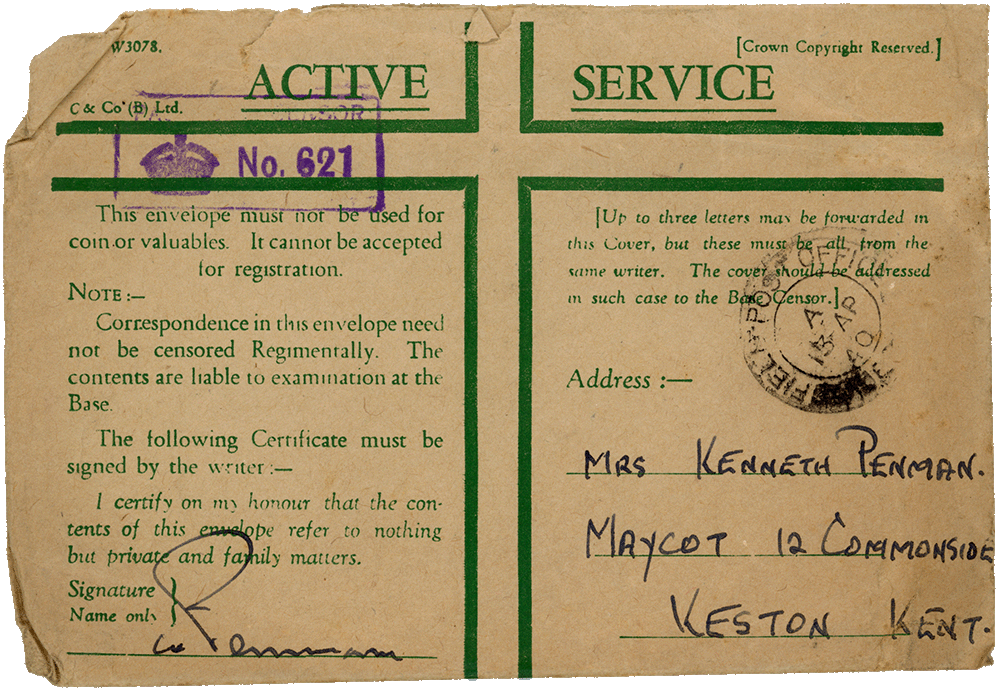 W3078.
[Crown Copyright Reserved.]
ACTIVE SERVICE
C & Co (B) Ltd.
No. 621
This envelope must not be used for
coin or valuables. It cannot be accepted
for registration.
NOTE :—
Correspondence in this envelope need
not be censored Regimentally. The
contents are liable to examination at the
Base.
The following Certificate must be
signed by the writer :—
I certify on my honour that the con-
tents of this envelope refer to nothing
but private and family matters.
Signature
Name only
Penman
[Up to three letters may be forwarded in
this Cover, but these must be all from the
same writer. The cover should be addressed
in such case to the Base Censor.]
FIELD POST OFFICE
AP
40
Address :—
MRS KENNETH PENMAN.
MAYCOT 12 COMMONSIDE
KESTON KENT.